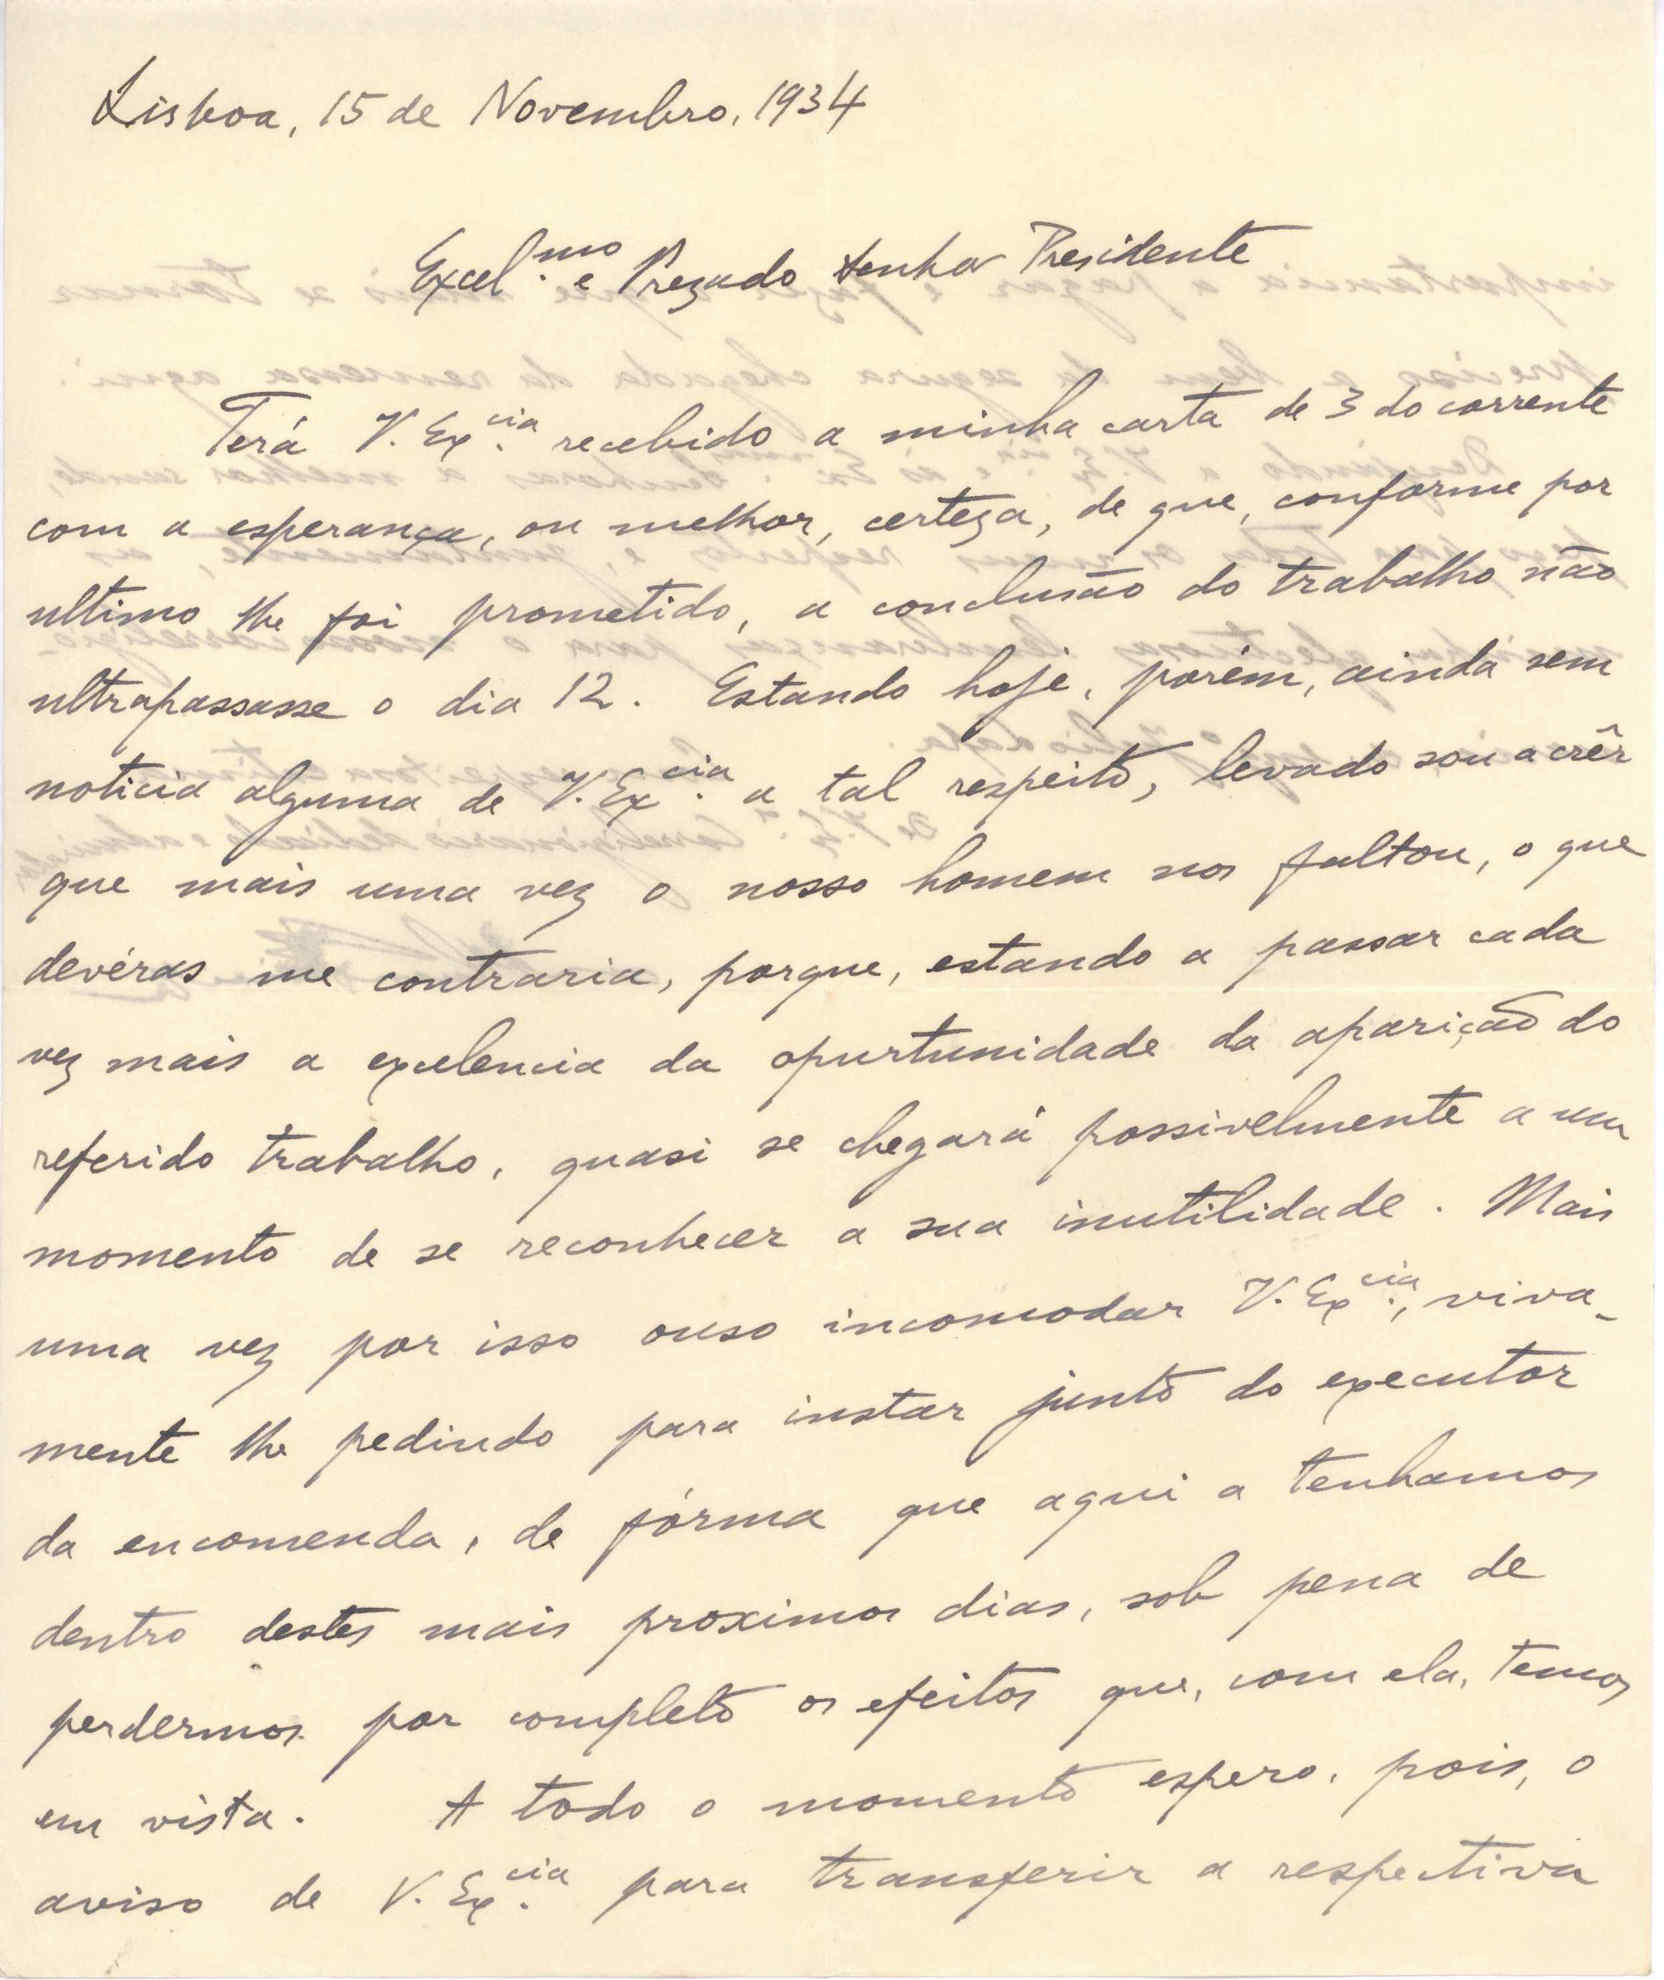 Lisboa, 15 de Novembro, 1934
Excel.mo e Prezado Senhor Presidente
Terá V. Ex.cia recebido a minha carta de 3 do corrente
com a esperança, ou melhor, certeza, de que, conforme por
ultimo lhe foi prometido, a conclusão do trabalho não
ultrapassasse o dia 12. Estando hoje, porém, ainda sem
noticia alguma de V. Ex.cia a tal respeito, levado sou a crêr
que mais uma vez o nosso homem nos faltou, o que
devéras me contraria, porque, estando a passar cada
vez mais a excelencia da opurtunidade da aparição do
referido trabalho, quasi se chegará possivelmente a um
momento de se reconhecer a sua inutilidade. Mais
uma vez por isso ouso incomodar V. Ex.cia, viva-
mente lhe pedindo para instar junto do executor
da encomenda, de fórma que aqui a tenhamos
dentro destes mais proximos dias, sob pena de
perdermos por completo os efeitos que, com ela, temos
em vista. A todo o momento espero, pois, o
aviso de V. Ex.cia para transferir a respectiva